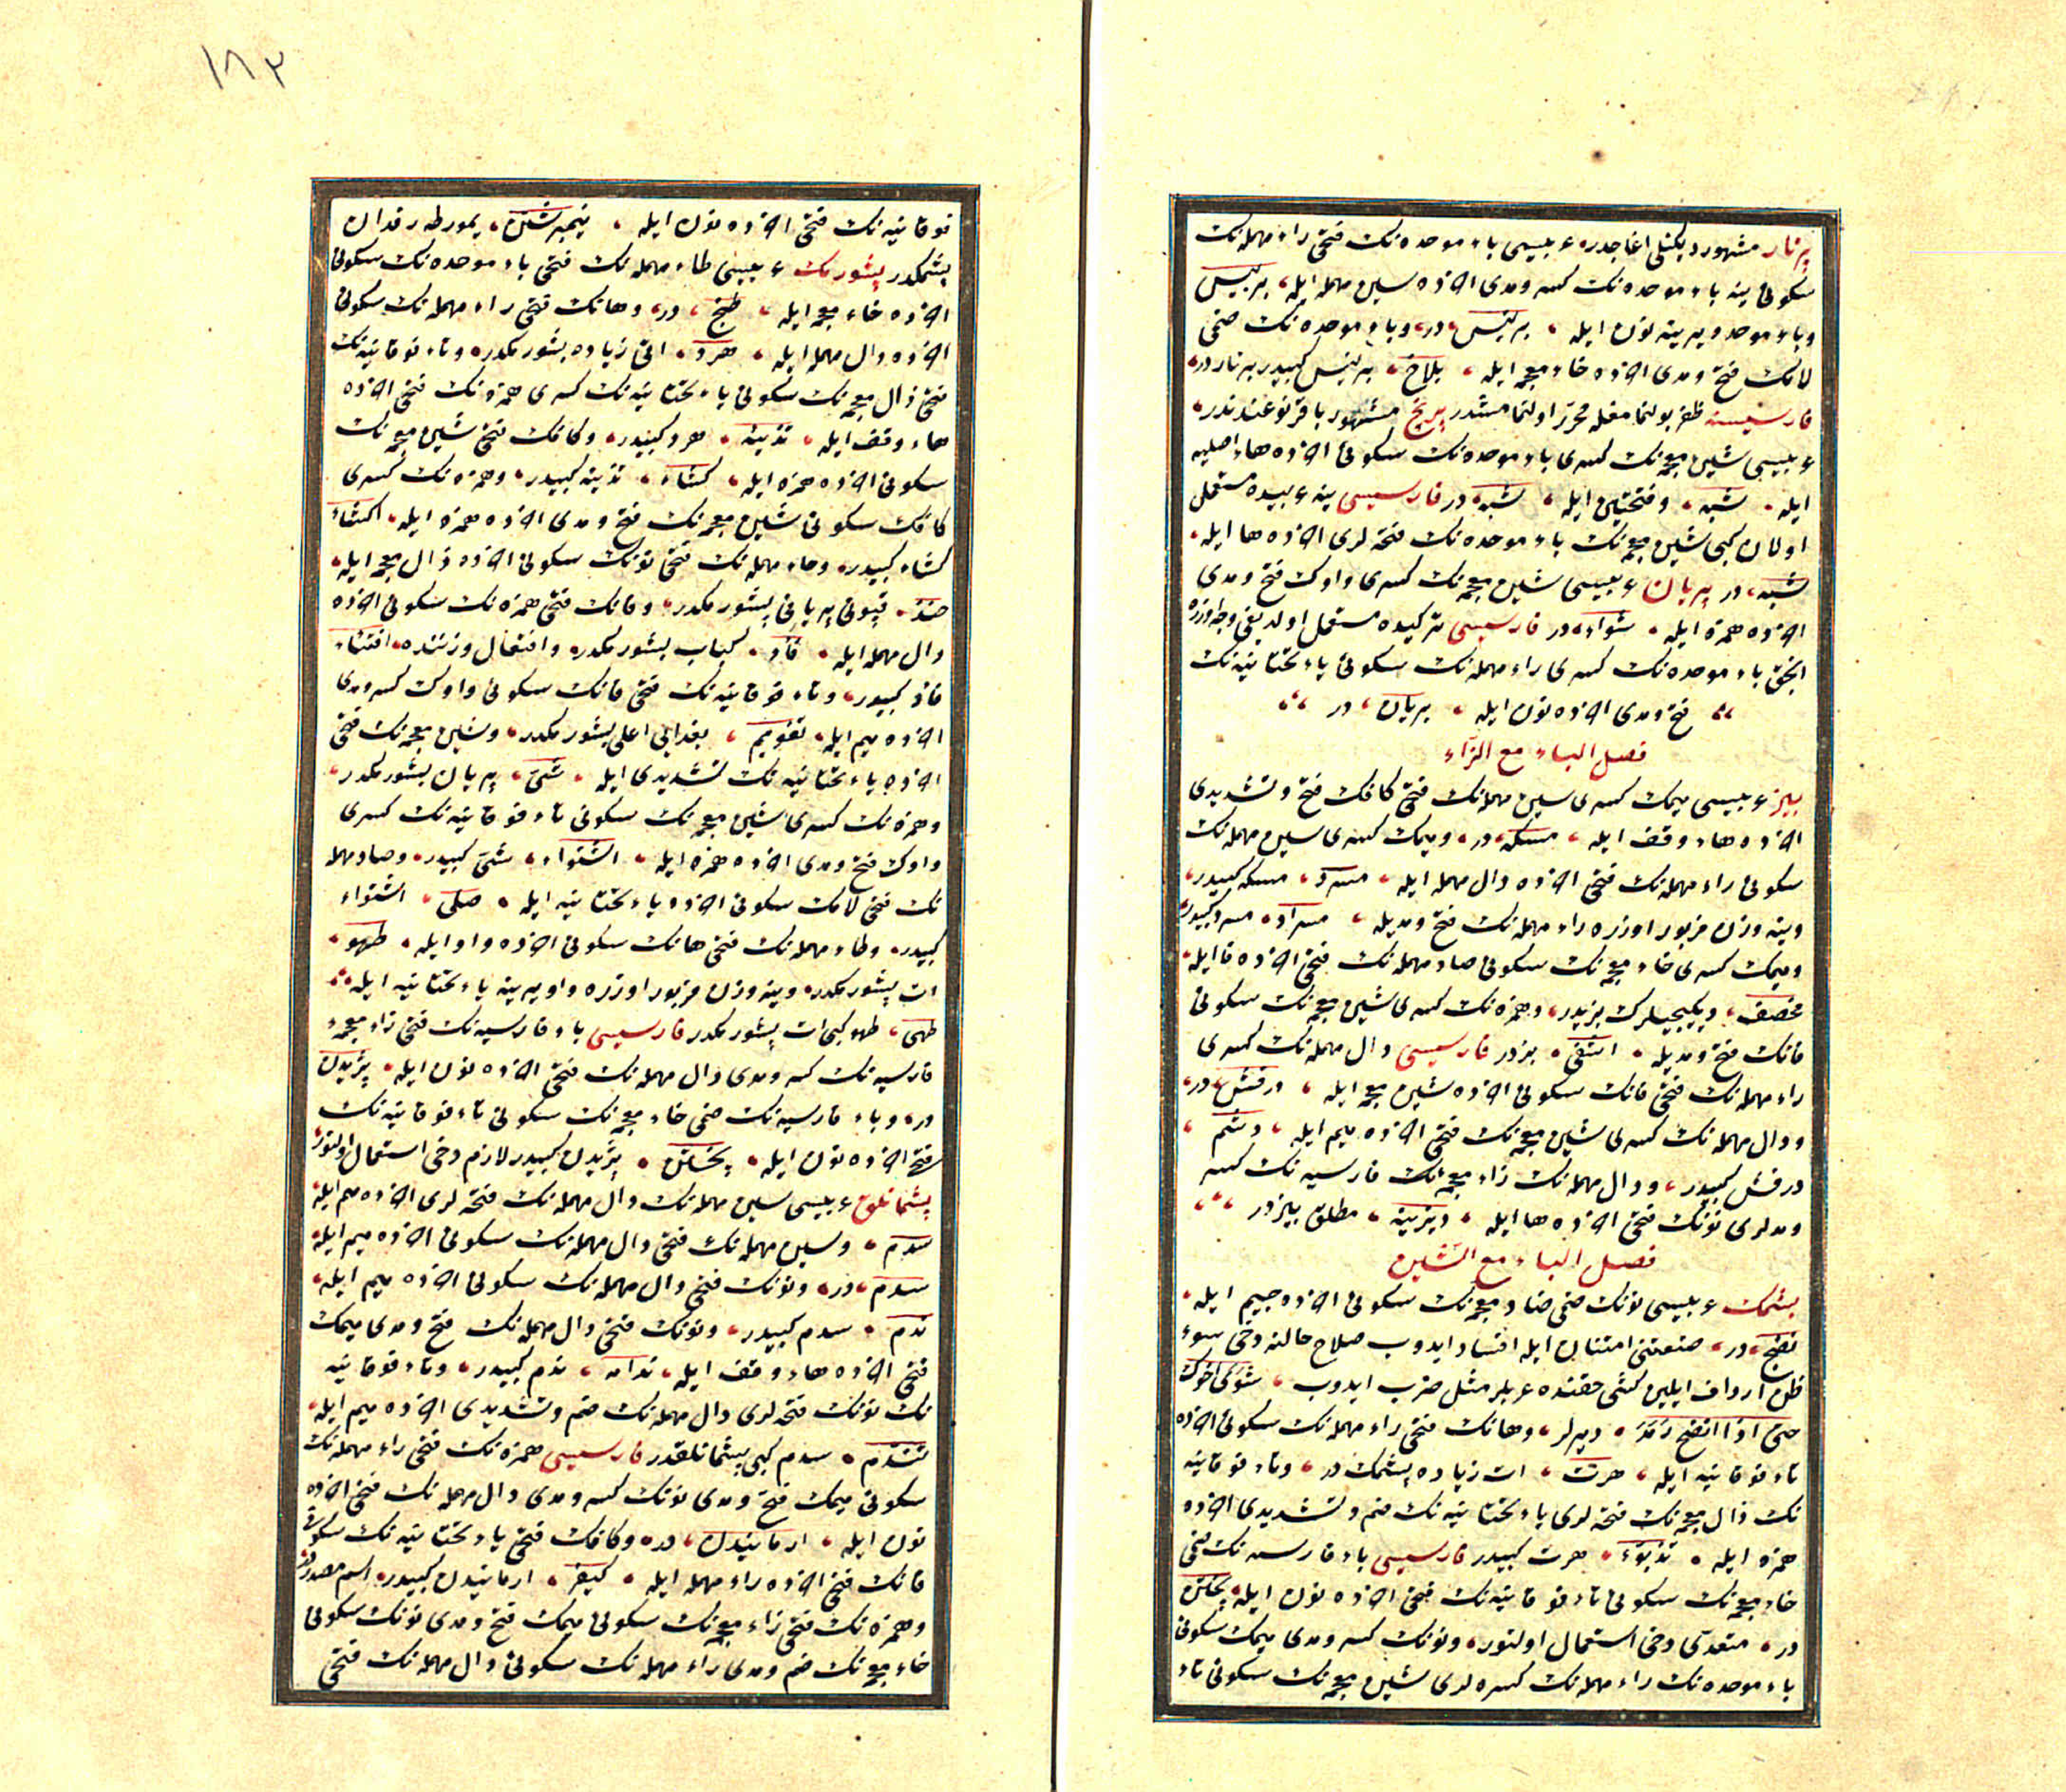 پرنار مشهور دیكنلی اغاجدر عربیسی باء موحده نك فتحی راء مهمله نك
سكونی ینه باء موحده نك كسر ومدی اخرده سین مهمله ایله بربیس
وباء موحد ویرینه نون ایله برنیس در وباء موحده نك ضمی
لامك فتح ومدی اخرده خاء معجمه ایله بلاخ برنیس كبیدر برنار در
فارسیسنه ظفر بولنمامغله محرر اولنمامشدر پرنج مشهور باقر نوعندندر
عربیسی شین معجمه نك كسری باء موحده نك سكونی اخرده هاء اصلیه
ایله شبه وفتحتین ایله شبه در فارسیسی ینه عربیده مستعمل
اولان كبی شین معجمه نك باء موحده نك فتحه لری اخرده ها ایله
شبه در پریان عربیسی شین معجمه نك كسری واوك فتح ومدی
اخرده همزه ایله شواء در فارسیسی تركیده مستعمل اولدیغی وجه اوزره
انجق باء موحده نك كسری راء مهمله نك سكونی یاء تحتانیه نك
فتح ومدی اخرده نون ایله بریان در
فصل الباء مع الزاء
بیز عربیسی میمك كسری سین مهمله نك فتحی كافك فتح وتشدیدی
اخرده هاء وقف ایله مسكه در ومیمك كسری سین مهمله نك
سكونی راء مهمله نك فتحی اخرده دال مهمله ایله مسرد مسكه كبیدر
وینه وزن مزبور اوزره راء مهمله نك فتح ومدیله مسراد مسرد كبیدر
ومیمك كسری خاء معجمه نك سكونی صاد مهمله نك فتحی اخرده فا ایله
مخصف دیكیجیلرك بزیدر وهمزه نك كسری شین معجمه نك سكونی
فانك فتح ومدیله اشفی بزدر فارسیسی دال مهمله نك كسری
راء مهمله نك فتحی فانك سكونی اخرده شین معجمه ایله درفش در
ودال مهمله نك كسری شین معجمه نك فتحی اخرده میم ایله دشم
درفش كبیدر ودال مهمله نك زاء معجمه نك فارسیه نك كسر
ومدلری نونك فتحی اخرده ها ایله دیزینه مطلق بیزدر
فصل الباء مع الشین
بشمك عربیسی نونك ضمی ضاد معجمه نك سكونی اخرده جیم ایله
نضج در صنعتنی امتنان ایله افساد ایدوب صلاح حالنه دخی سوء
ظن ارداف ایلین كشی حقنده عربلر مثل ضرب ایدوب شوی اخوك
حتی اذا انضج رمد دیرلر وهانك فتحی راء مهمله نك سكونی اخرده
تاء فوقانیه ایله هرت ات زیاده پشمك در وتاء فوقانیه
نك ذال معجمه نك فتحه لری یاء تحتانیه نك ضم وتشدیدی اخرده
همزه ایله تذیؤ هرت كبیدر فارسیسی باء فارسیه نك ضمی
خاء معجمه نك سكونی تاء فوقانیه نك فتحی اخرده نون ایله پختن
در متعدی دخی استعمال اولنور ونونك كسر ومدی میمك سكونی
باء موحده نك راء مهمله نك كسره لری شین معجمه نك سكونی تاء
١٨٢
فوقانیه نك فتحی اخرده نون ایله نیمبرشتن یمورطه رفدان
پشمكدر پشورمك عربیسی طاء مهمله نك فتحی باء موحده نك سكونی
اخرده خاء معجمه ایله طبخ در وهانك فتحی راء مهمله نك سكونی
اخرده دال مهمله ایله هرد اتی زیاده پشورمكدر وتاء فوقانیه نك
فتحی ذال معجمه نك سكونی یاء تحتانیه نك كسری همزه نك فتحی اخرده
هاء وقف ایله تذیئه هرد كبیدر وكافك فتحی شین معجمه نك
سكونی اخرده همزه ایله كشاء تذیئه كبیدر وهمزه نك كسری
كافك سكونی شین معجمه نك فتح ومدی اخرده همزه ایله اكشاء
كشاء كبیدر وحاء مهمله نك فتحی نونك سكونی اخرده ذال معجمه ایله
حنذ قیونی پریانی پشورمكدر وفانك فتحی همزه نك سكونی اخرده
دال مهمله ایله فأد كباب پشورمكدر وافتعال وزننده افتئاد
فأد كبیدر وتاء فوقانیه نك فتحی قانك سكونی واوك كسر ومدی
اخرده میم ایله تقویم بغدایی اعلی پشورمكدر وشین معجمه نك فتحی
اخرده یاء تحتانیه نك تشدیدی ایله شی پریان پشورمكدر
وهمزه نك كسری شین معجمه نك سكونی تاء فوقانیه نك كسری
واوك فتح ومدی اخرده همزه ایله اشتواء شی كبیدر وصاد مهمله
نك فتحی لامك سكونی اخرده یاء تحتانیه ایله صلی اشتواء
كبیدر وطاء مهمله نك فتحی هانك سكونی اخرده واو ایله طهو
ات پشورمكدر وینه وزن مزبور اوزره واو یرینه یاء تحتانیه ایله
طهی طهو كبی ات پشورمكدر فارسیسی باء فارسیه نك فتحی زاء معجمه
فارسیه نك كسر ومدی دال مهمله نك فتحی اخرده نون ایله پزیدن
در وباء فارسیه نك ضمی خاء معجمه نك سكونی تاء فوقانیه نك
فتحی اخرده نون ایله پختن پزیدن كبیدر لازم دخی استعمال اولنور
پشمانلق عربیسی سین مهمله نك دال مهمله نك فتحه لری اخرده میم ایله
سدم وسین مهمله نك فتحی دال مهمله نك سكونی اخرده میم ایله
سدم در ونونك فتحی دال مهمله نك سكونی اخرده میم ایله
ندم سدم كبیدر ونونك فتحی دال مهمله نك فتح ومدی میمك
فتحی اخرده هاء وقف ایله ندامه ندم كبیدر وتاء فوقانیه
نك نونك فتحه لری دال مهمله نك ضم وتشدیدی اخرده میم ایله
تندم سدم كبی پیشمانلقدر فارسیسی همزه نك فتحی راء مهمله نك
سكونی میمك فتح ومدی نونك كسر ومدی دال مهمله نك فتحی اخرده
نون ایله ارمانیدن در وكافك فتحی یاء تحتانیه نك سكونی
فانك فتحی اخرده راء مهمله ایله كیفر ارمانیدن كبیدر اسم مصدردر
وهمزه نك فتحی زاء معجمه نك سكونی میمك فتح ومدی نونك سكونی
خاء معجمه نك ضم ومدی راء مهمله نك سكونی دال مهمله نك فتحی